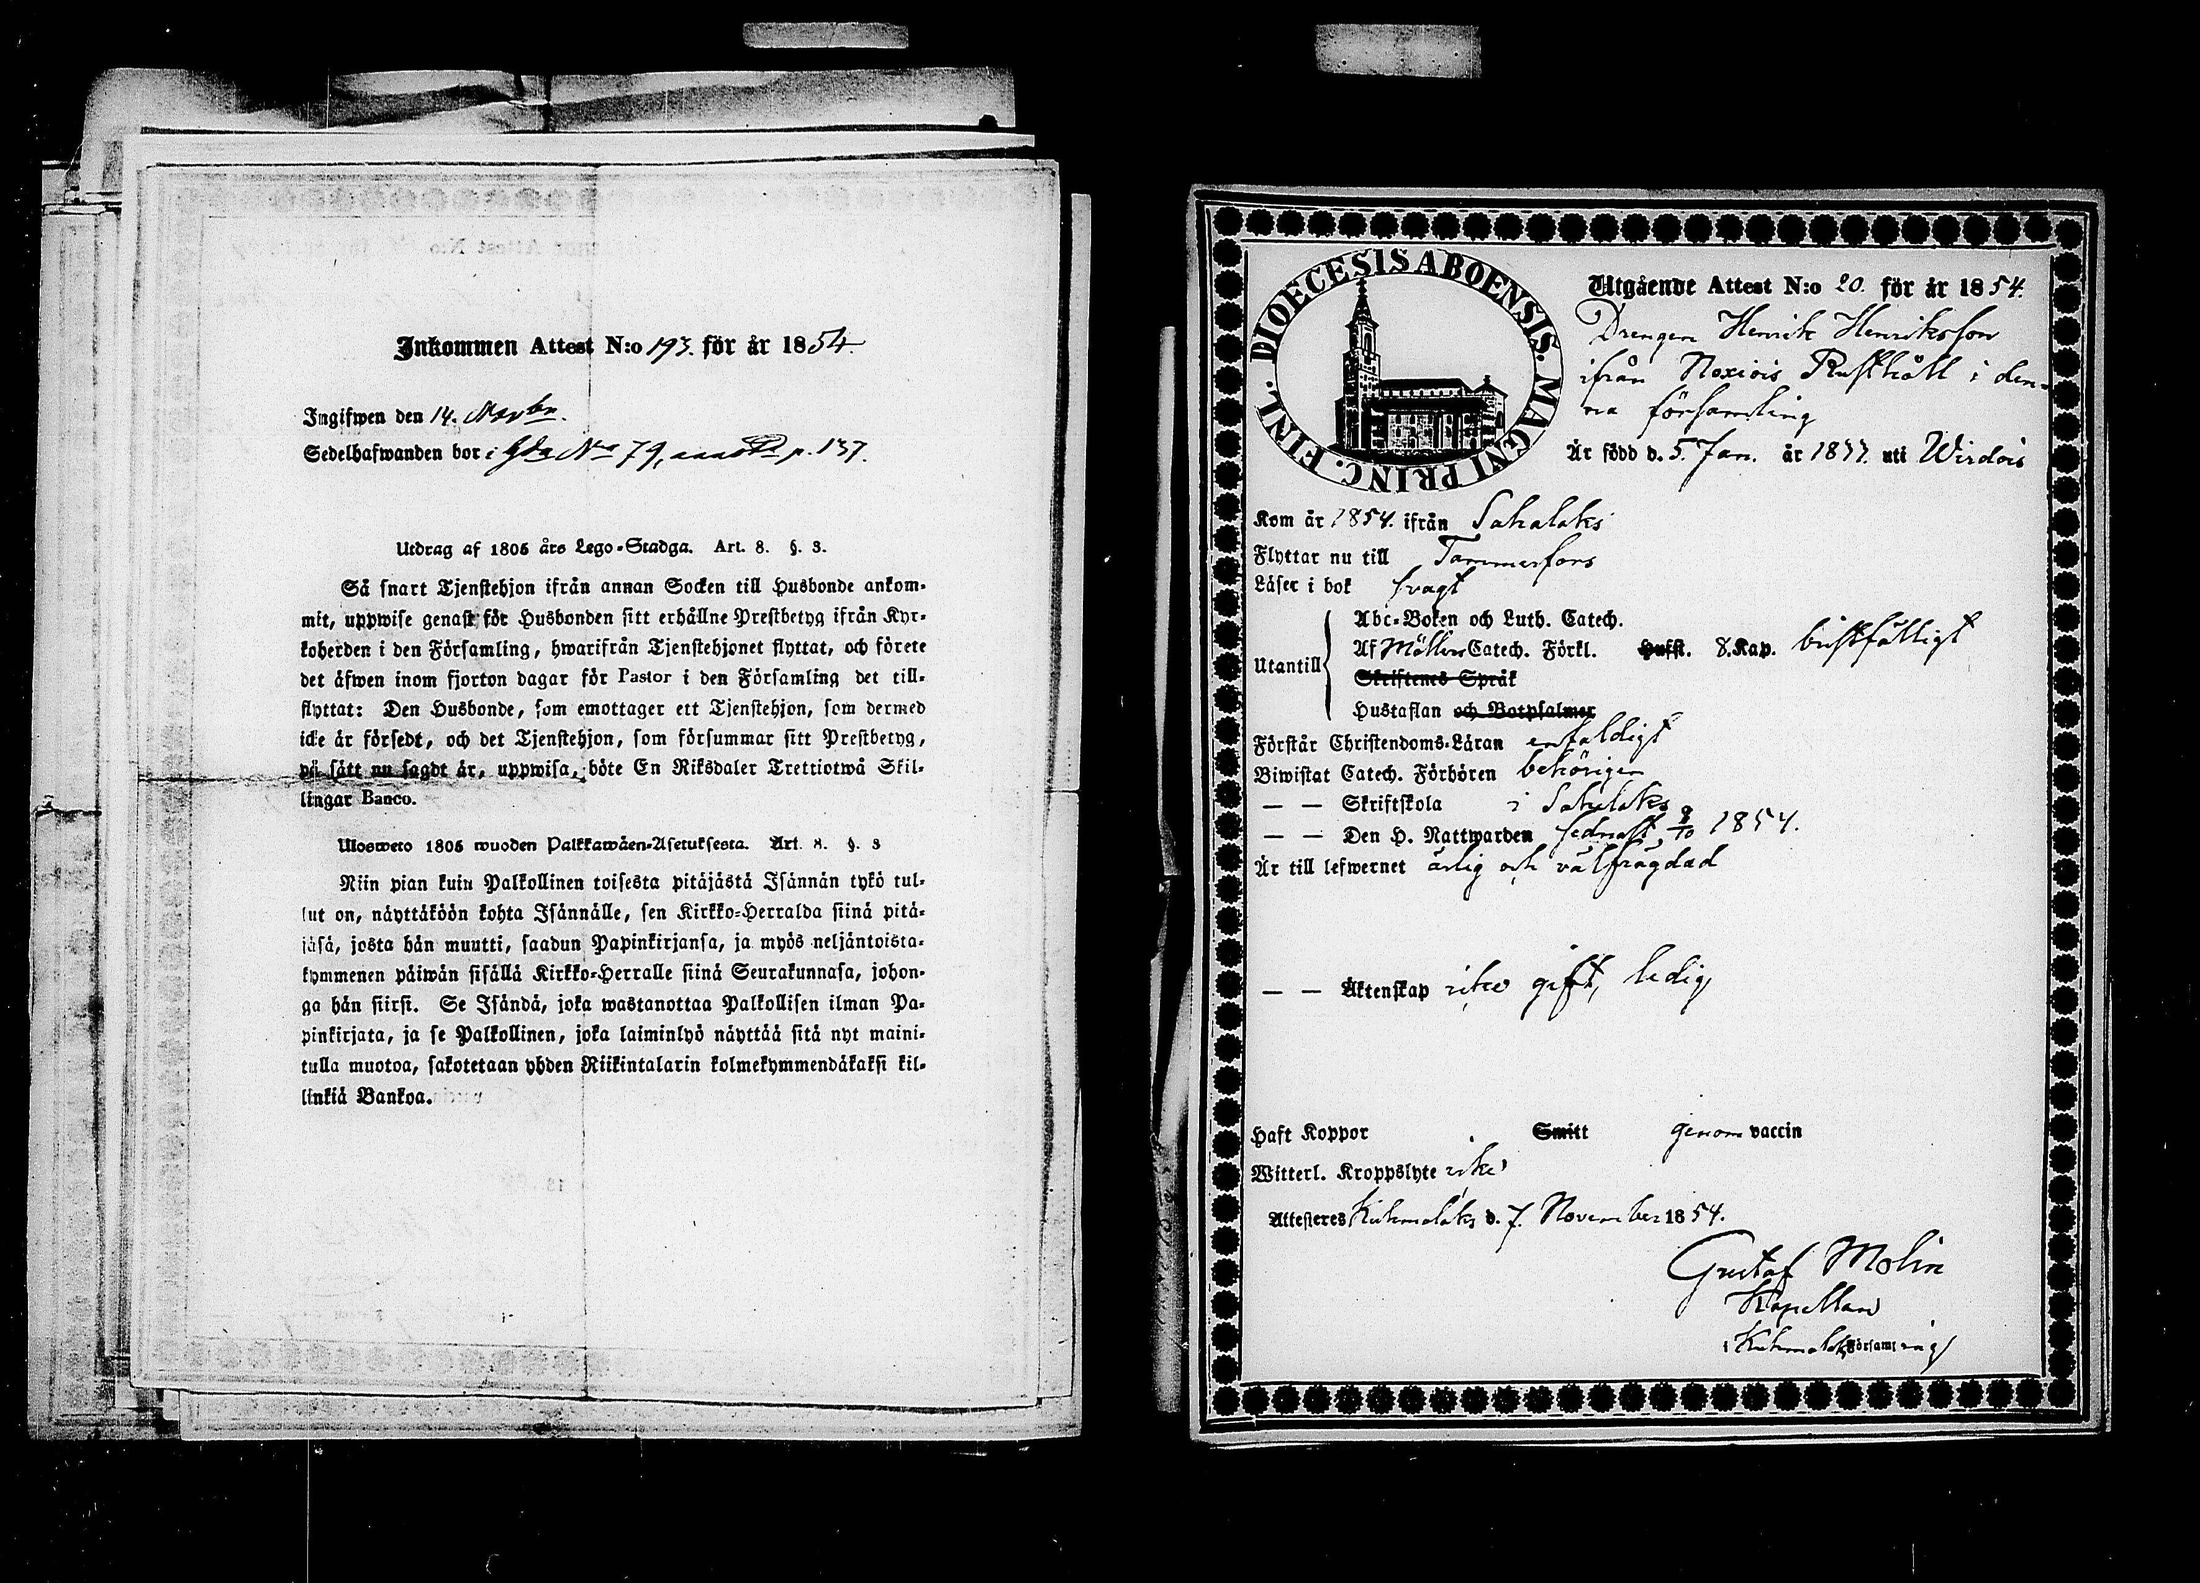 Inkommen Attest N:o 193. för år 1854.
Ingifwen den 14. Novbr.
Sedelhafwanden bor i Gda No 79, p. 137.
Utdrag af 1805 års Lego-Stadga. Art. 8. §. 3.
Så snart Tjenstehjon ifrån annan Socken till Husbonde ankom-
mit, uppwise genast för Husbonden sitt erhållne Prestbetyg ifrån Kyr-
koherden i den Församling, hwarifrån Tjenstehjonet flyttat, och förete
det äfwen inom fjorton dagar för Pastor i den Församling det till-
flyttat: Den Husbonde, som emottager ett Tjenstehjon, som dermed
icke är försedt, och det Tjenstehjon, som försummar sitt Prestbetyg,
på sätt nu sagdt är, uppwisa, böte En Riksdaler Trettiotwå Skil-
lingar Banco.
Ulosweto 1805 wuoden Palkkawäen-Asetuksesta. Art. 8. §. 3
Niin pian kuin Palkollinen toisesta pitäjästä Isännän tykö tul-
lut on, näyttäköön kohta Isännälle, sen Kirkko-Herralda siinä pitä-
jäsä, josta hän muutti, saadun Papinkirjansa, ja myös neljäntoista-
kymmenen päiwän sisällä Kirkko-Herralle siinä Seurakunnasa, johon-
ga hän siirsi. Se Isändä, joka wastanottaa Palkollisen ilman Pa-
pinkirjata, ja se Palkollinen, joka laiminlyö näyttää sitä nyt maini-
tulla muotoa, sakotetaan yhden Riikintalarin kolmekymmendäkaksi kil-
linkiä Bankoa.
DIOECESIS ABOENSIS. MAGNI PRINC. FINL.
Utgående Attest N:o 20. för år 1854.
Drengen Henrik Henriksson
ifrån Noxiois Rusthåll i den-
na församling
Är född d. 5. Jan. år 1837. uti Wirdois
Kom år 1854. ifrån Sahalaks
Flyttar nu till Tammerfors
Läser i bok svagt
Utantill
Abc-Boken och Luth. Catech.
Af Möllers Catech. Förkl. Husst. 8. Kap. bristfälligt
Skriftenes Språk
Hustaflan och Botpsalmer
Förstår Christendoms-Läran enfaldigt
Biwistat Catech. Förhören behörigen
— — Skriftskola i Sahalaks
— — Den H. Nattwarden sednast 8/10 1854.
Är till lefwernet ärlig och välfrägdad
— — Äktenskap icke gift, ledig
Haft Koppor Smitt genom vaccin
Witterl. Kroppslyte icke
Attesteres Kuhmalaks d. 7. November 1854.
Gustaf Molin
Kapellan
i Kuhmalaks Församling